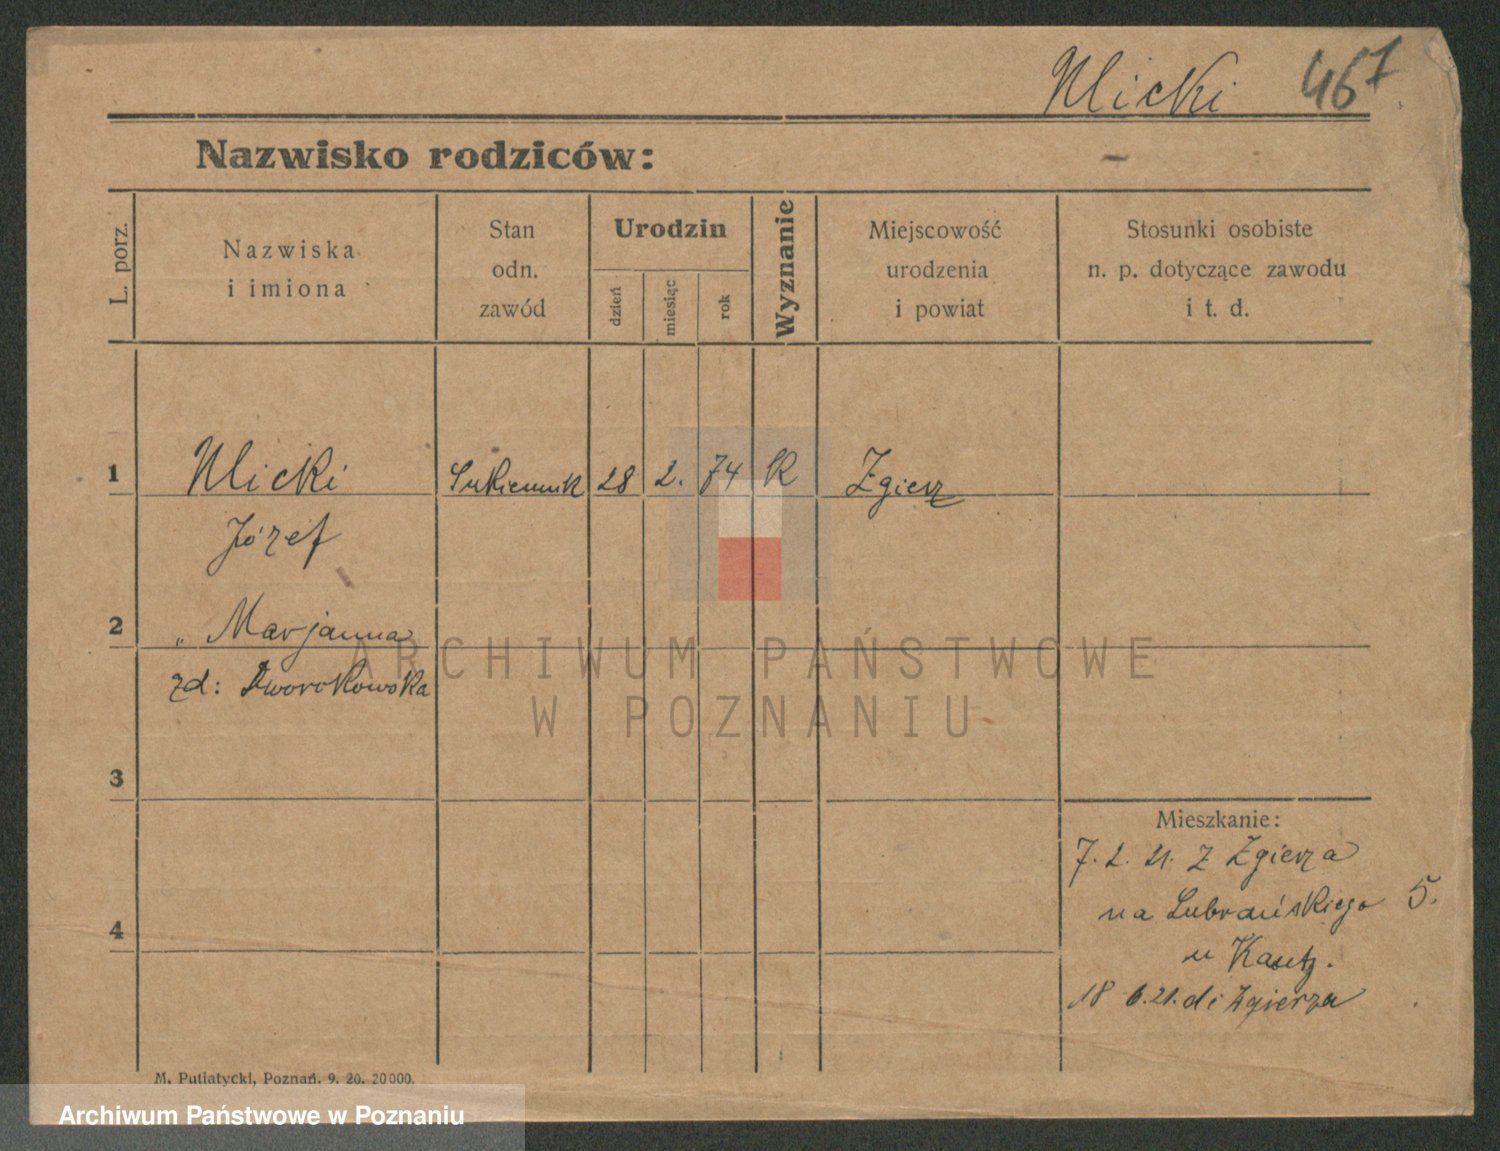 Ulicki 467
Nazwisko rodziców: –
L. porz.
Nazwiska
i imiona
Stan
odn.
zawód
Urodzin
dzień
miesiąc
rok
Wyznanie
Miejscowość
urodzenia
i powiat
Stosunki osobiste
n. p. dotyczące zawodu
i t. d.
1 Ulicki Sukiennik 28 2. 74 K Zgierz
Józef
2 „ Marjanna
zd: Dworokowska
3
4
Mieszkanie:
7. 2. 21. z Zgierza
na Lubrańskiego 5.
u Kautz.
18 6. 21. do Zgierza
M. Putiatycki, Poznań. 9. 20. 20000.
ARCHIWUM PAŃSTWOWE
W POZNANIU
Archiwum Państwowe w Poznaniu